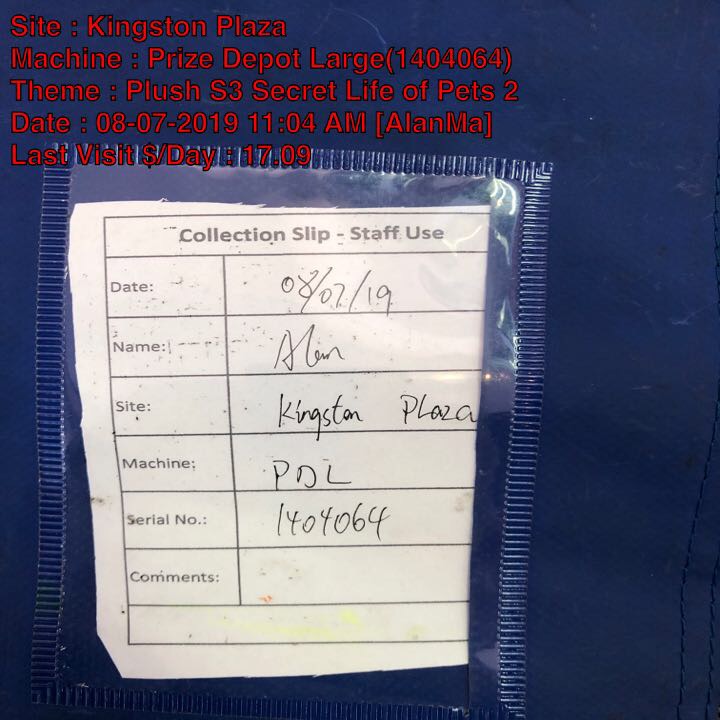 Site : Kingston Plaza
Machine : Prize Depot Large(1404064)
Theme : Plush S3 Secret Life of Pets 2
Date : 08-07-2019 11:04 AM [AlanMa]
Last Visit $/Day : 17.09
Collection Slip - Staff Use
Date: 08/07/19
Name: Alan
Site: Kingston Plaza
Machine: PDL
Serial No.: 1404064
Comments: